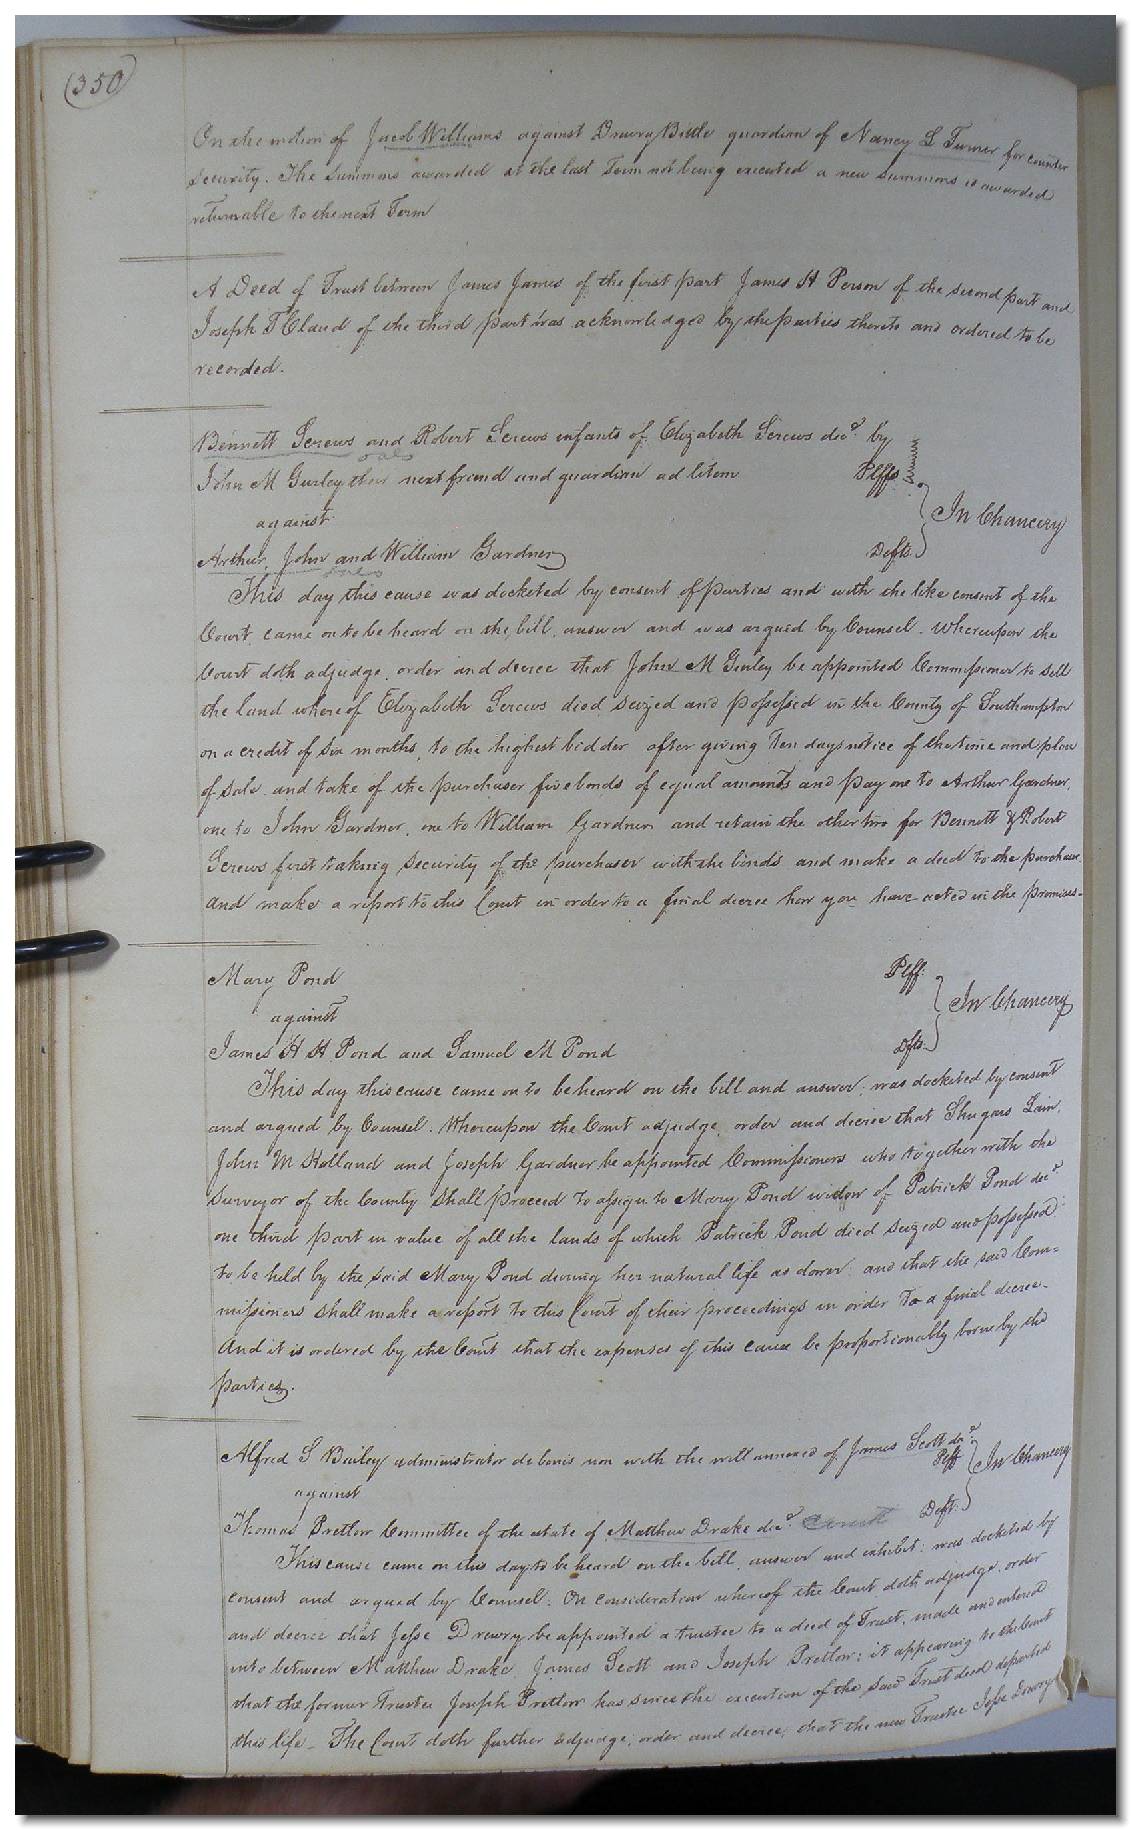 (350)
On the motion of Jacob Williams against Drewry Bittle guardian of Nancy L Turner for counter
security. The summons awarded at the last Term not being executed a new summons is awarded
returnable to the next Term
A Deed of Trust between James James of the first part James H Person of the second part and
Joseph T Claud of the third part was acknowledged by the parties thereto and ordered to be
recorded.
Bennett Screws and Robert Screws infants of Elizabeth Screws decd. by
John M Gurley their next friend and guardian ad litem Plffs
against In Chancery
Arthur, John and William Gardner Defts.
This day this cause was docketed by consent of parties and with the like consent of the
Court came on to be heard on the bill, answer and was argued by Counsel. Whereupon the
Court doth adjudge, order and decree that John M Gurley be appointed Commissioner to sell
the land whereof Elizabeth Screws died seized and possessed in the County of Southampton
on a credit of six months, to the highest bidder after giving Ten days notice of the time and place
of sale and take of the purchaser five bonds of equal amounts and pay one to Arthur Gardner,
one to John Gardner, one to William Gardner and retain the other two for Bennett & Robert
Screws first taking security of the purchaser with the bonds and make a deed to the purchaser
and make a report to this Court in order to a final decree how you have acted in the premises.
Mary Pond Plff.
against In Chancery
James H H Pond and Samuel M Pond Dfts.
This day this cause came on to be heard on the bill and answer, was docketed by consent
and argued by Counsel. Whereupon the Court adjudge, order and decree that Shugars Lain,
John M Holland and Joseph Gardner be appointed Commissioners who together with the
surveyor of the County shall proceed to assign to Mary Pond widow of Patrick Pond decd
one third part in value of all the lands of which Patrick Pond died seized and possessed
to be held by the said Mary Pond during her natural life as dower and that the said Com=
missioners shall make a report to this Court of their proceedings in order to a final decree.
And it is ordered by the Court that the expenses of this cause be proportionably borne by the
parties.
Alfred S Bailey administrator de bonis non with the will annexed of James Scott decd. Plff
against In Chancery
Thomas Pretlow Committee of the estate of Matthew Drake decd. Deft.
This cause came on this day to be heard on the bill, answer and exhibit; was docketed by
consent and argued by Counsel. On consideration whereof the Court doth adjudge, order
and decree that Jesse Drewry be appointed a trustee to a deed of Trust, made and entered
into between Matthew Drake, James Scott and Joseph Pretlow; it appearing to the Court
that the former Trustee Joseph Pretlow has since the execution of the said Trust deed departed
this life. The Court doth further adjudge, order and decree, that the new Trustee Jesse Drewry